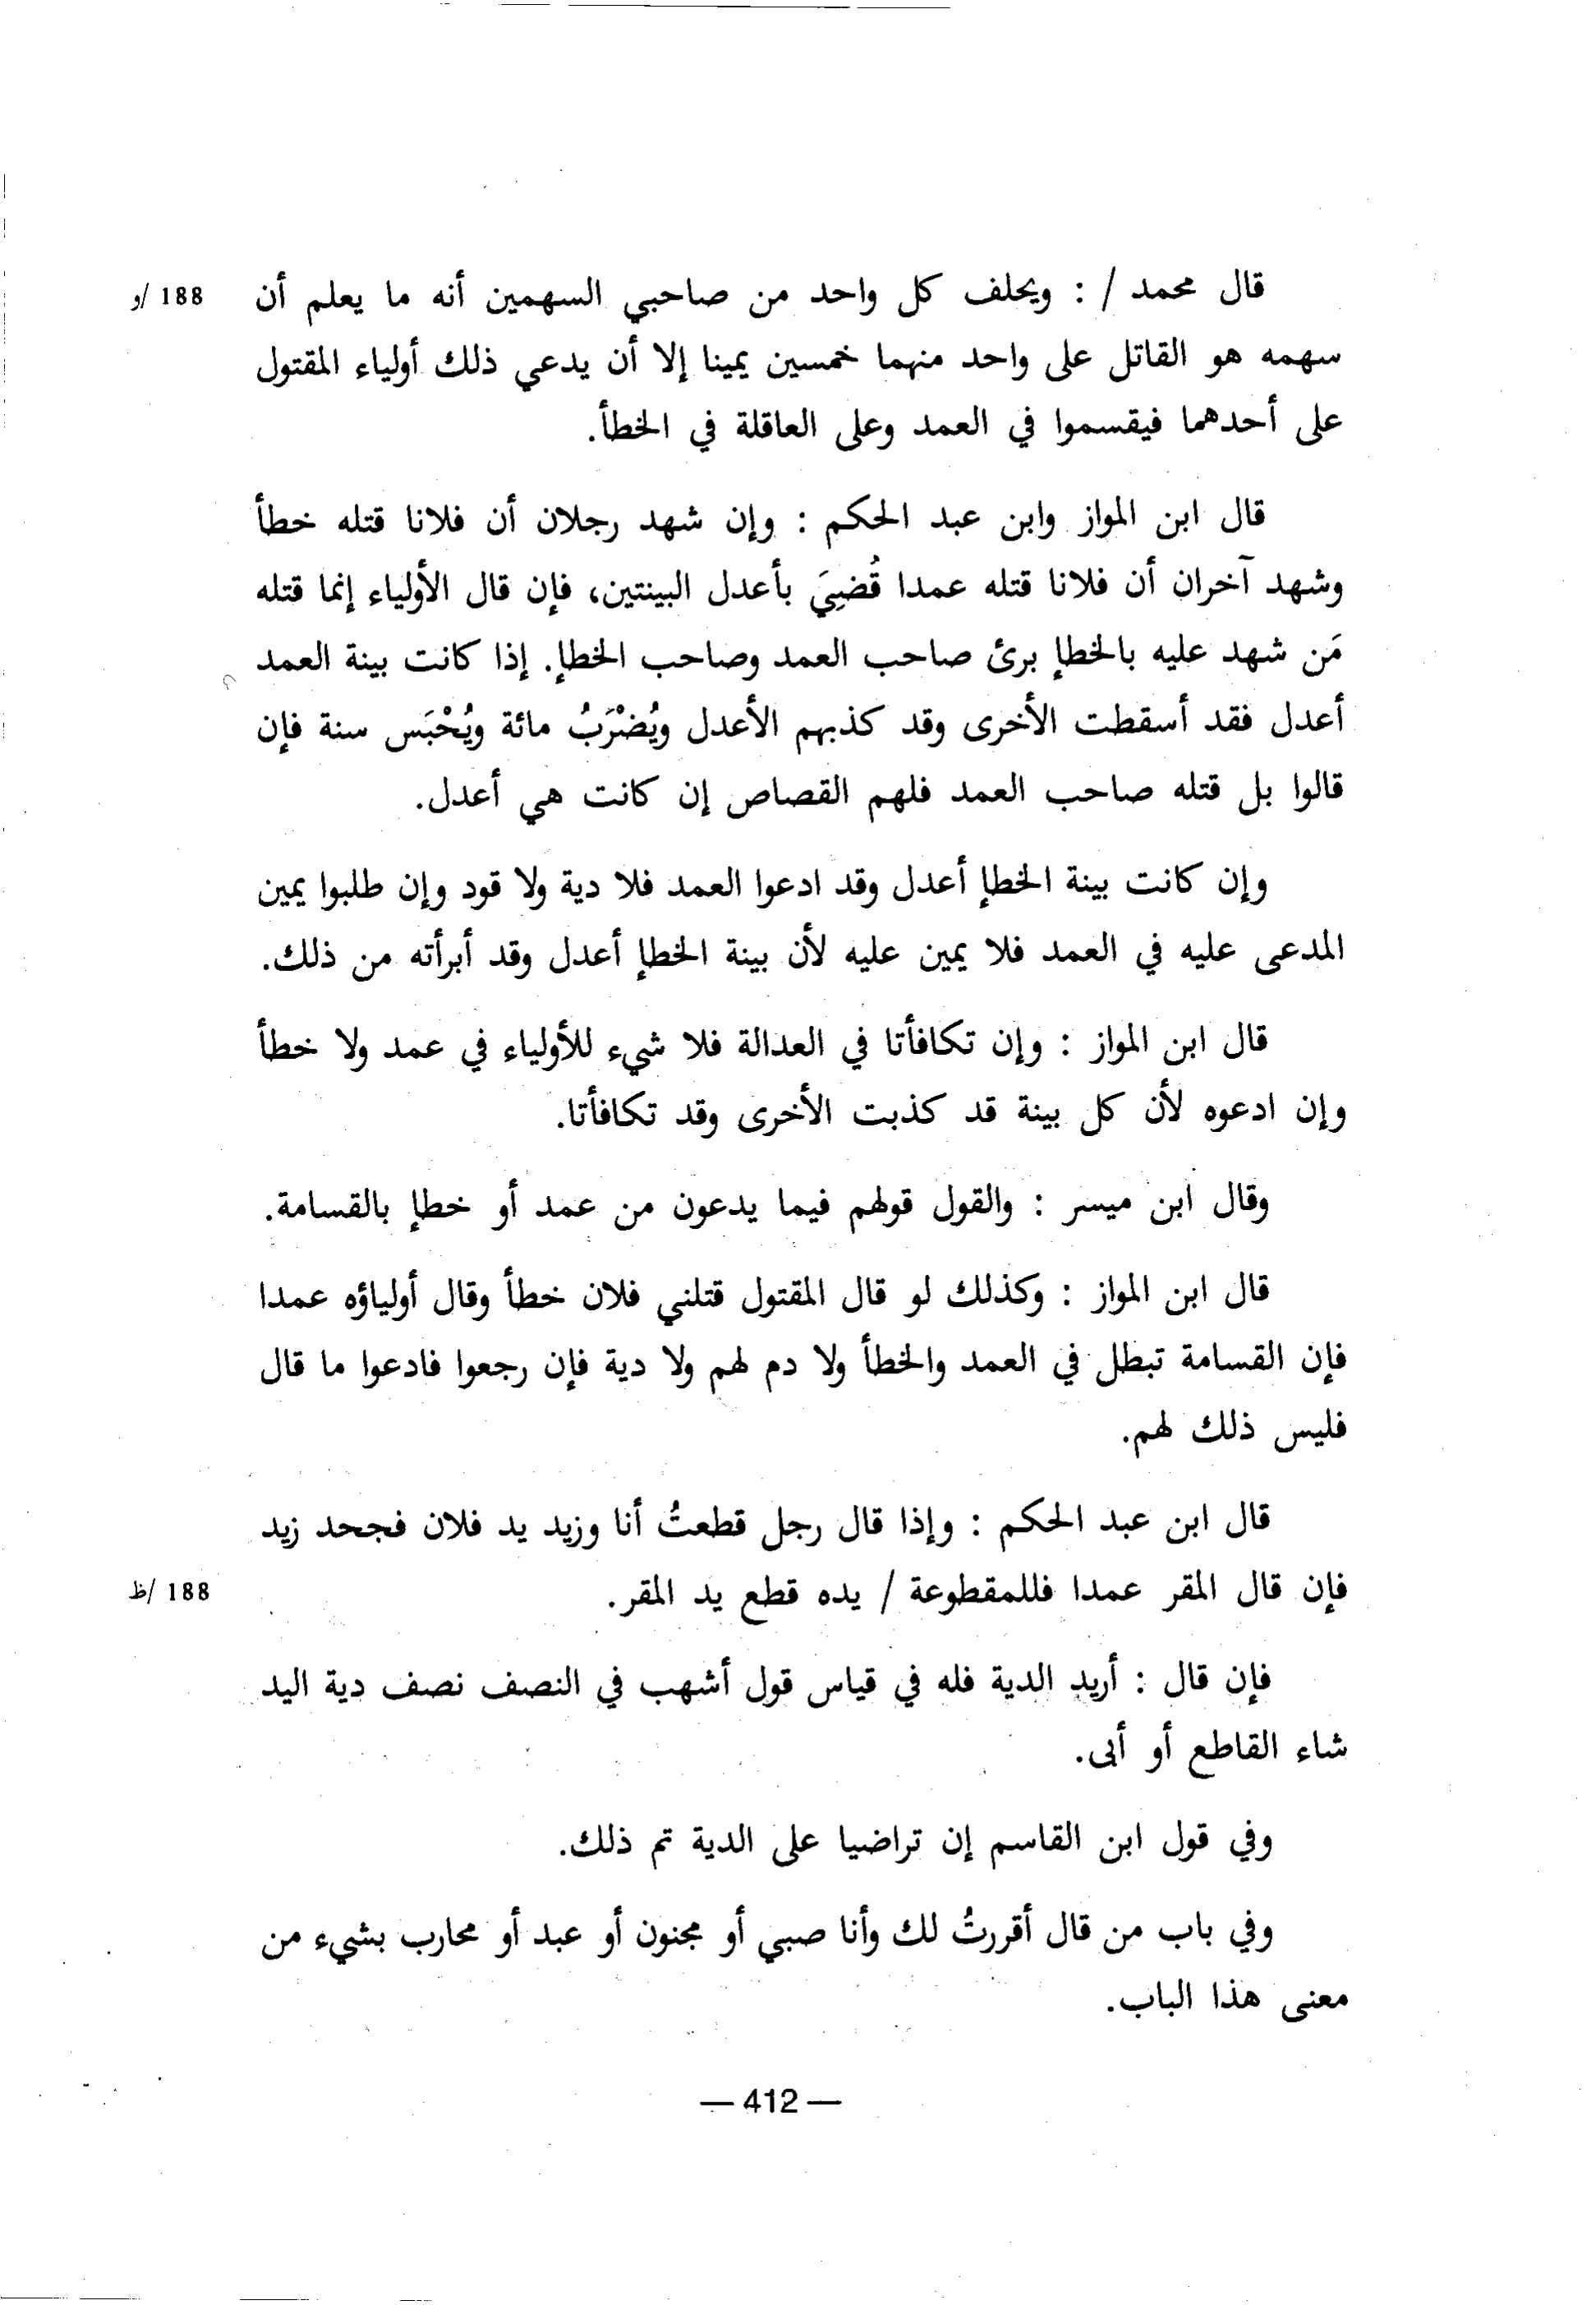 قال محمد / : ويحلف كل واحد من صاحبي السهمين أنه ما يعلم أن 188 /و
سهمه هو القاتل على واحد منهما خمسين يمينا إلا أن يدعي ذلك أولياء المقتول
على أحدهما فيقسموا في العمد وعلى العاقلة في الخطأ.
قال ابن المواز وابن عبد الحكم : وإن شهد رجلان أن فلانا قتله خطأ
وشهد آخران أن فلانا قتله عمدا قُضِيَ بأعدل البينتين، فإن قال الأولياء إنما قتله
مَن شهد عليه بالخطإ برئ صاحب العمد وصاحب الخطإ. إذا كانت بينة العمد
أعدل فقد أسقطت الأخرى وقد كذبهم الأعدل ويُضْرَبُ مائة ويُحْبَس سنة فإن
قالوا بل قتله صاحب العمد فلهم القصاص إن كانت هي أعدل.
وإن كانت بينة الخطإ أعدل وقد ادعوا العمد فلا دية ولا قود وإن طلبوا يمين
المدعى عليه في العمد فلا يمين عليه لأن بينة الخطإ أعدل وقد أبرأته من ذلك.
قال ابن المواز : وإن تكافأتا في العدالة فلا شيء للأولياء في عمد ولا خطأ
وإن ادعوه لأن كل بينة قد كذبت الأخرى وقد تكافأتا.
وقال ابن ميسر : والقول قولهم فيما يدعون من عمد أو خطإ بالقسامة.
قال ابن المواز : وكذلك لو قال المقتول قتلني فلان خطأ وقال أولياؤه عمدا
فإن القسامة تبطل في العمد والخطأ ولا دم لهم ولا دية فإن رجعوا فادعوا ما قال
فليس ذلك لهم.
قال ابن عبد الحكم : وإذا قال رجل قطعتُ أنا وزيد يد فلان فجحد زيد
فإن قال المقر عمدا فللمقطوعة / يده قطع يد المقر. 188 /ظ
فإن قال : أريد الدية فله في قياس قول أشهب في النصف نصف دية اليد
شاء القاطع أو أبى.
وفي قول ابن القاسم إن تراضيا على الدية تم ذلك.
وفي باب من قال أقررتُ لك وأنا صبي أو مجنون أو عبد أو محارب بشيء من
معنى هذا الباب.
— 412 —